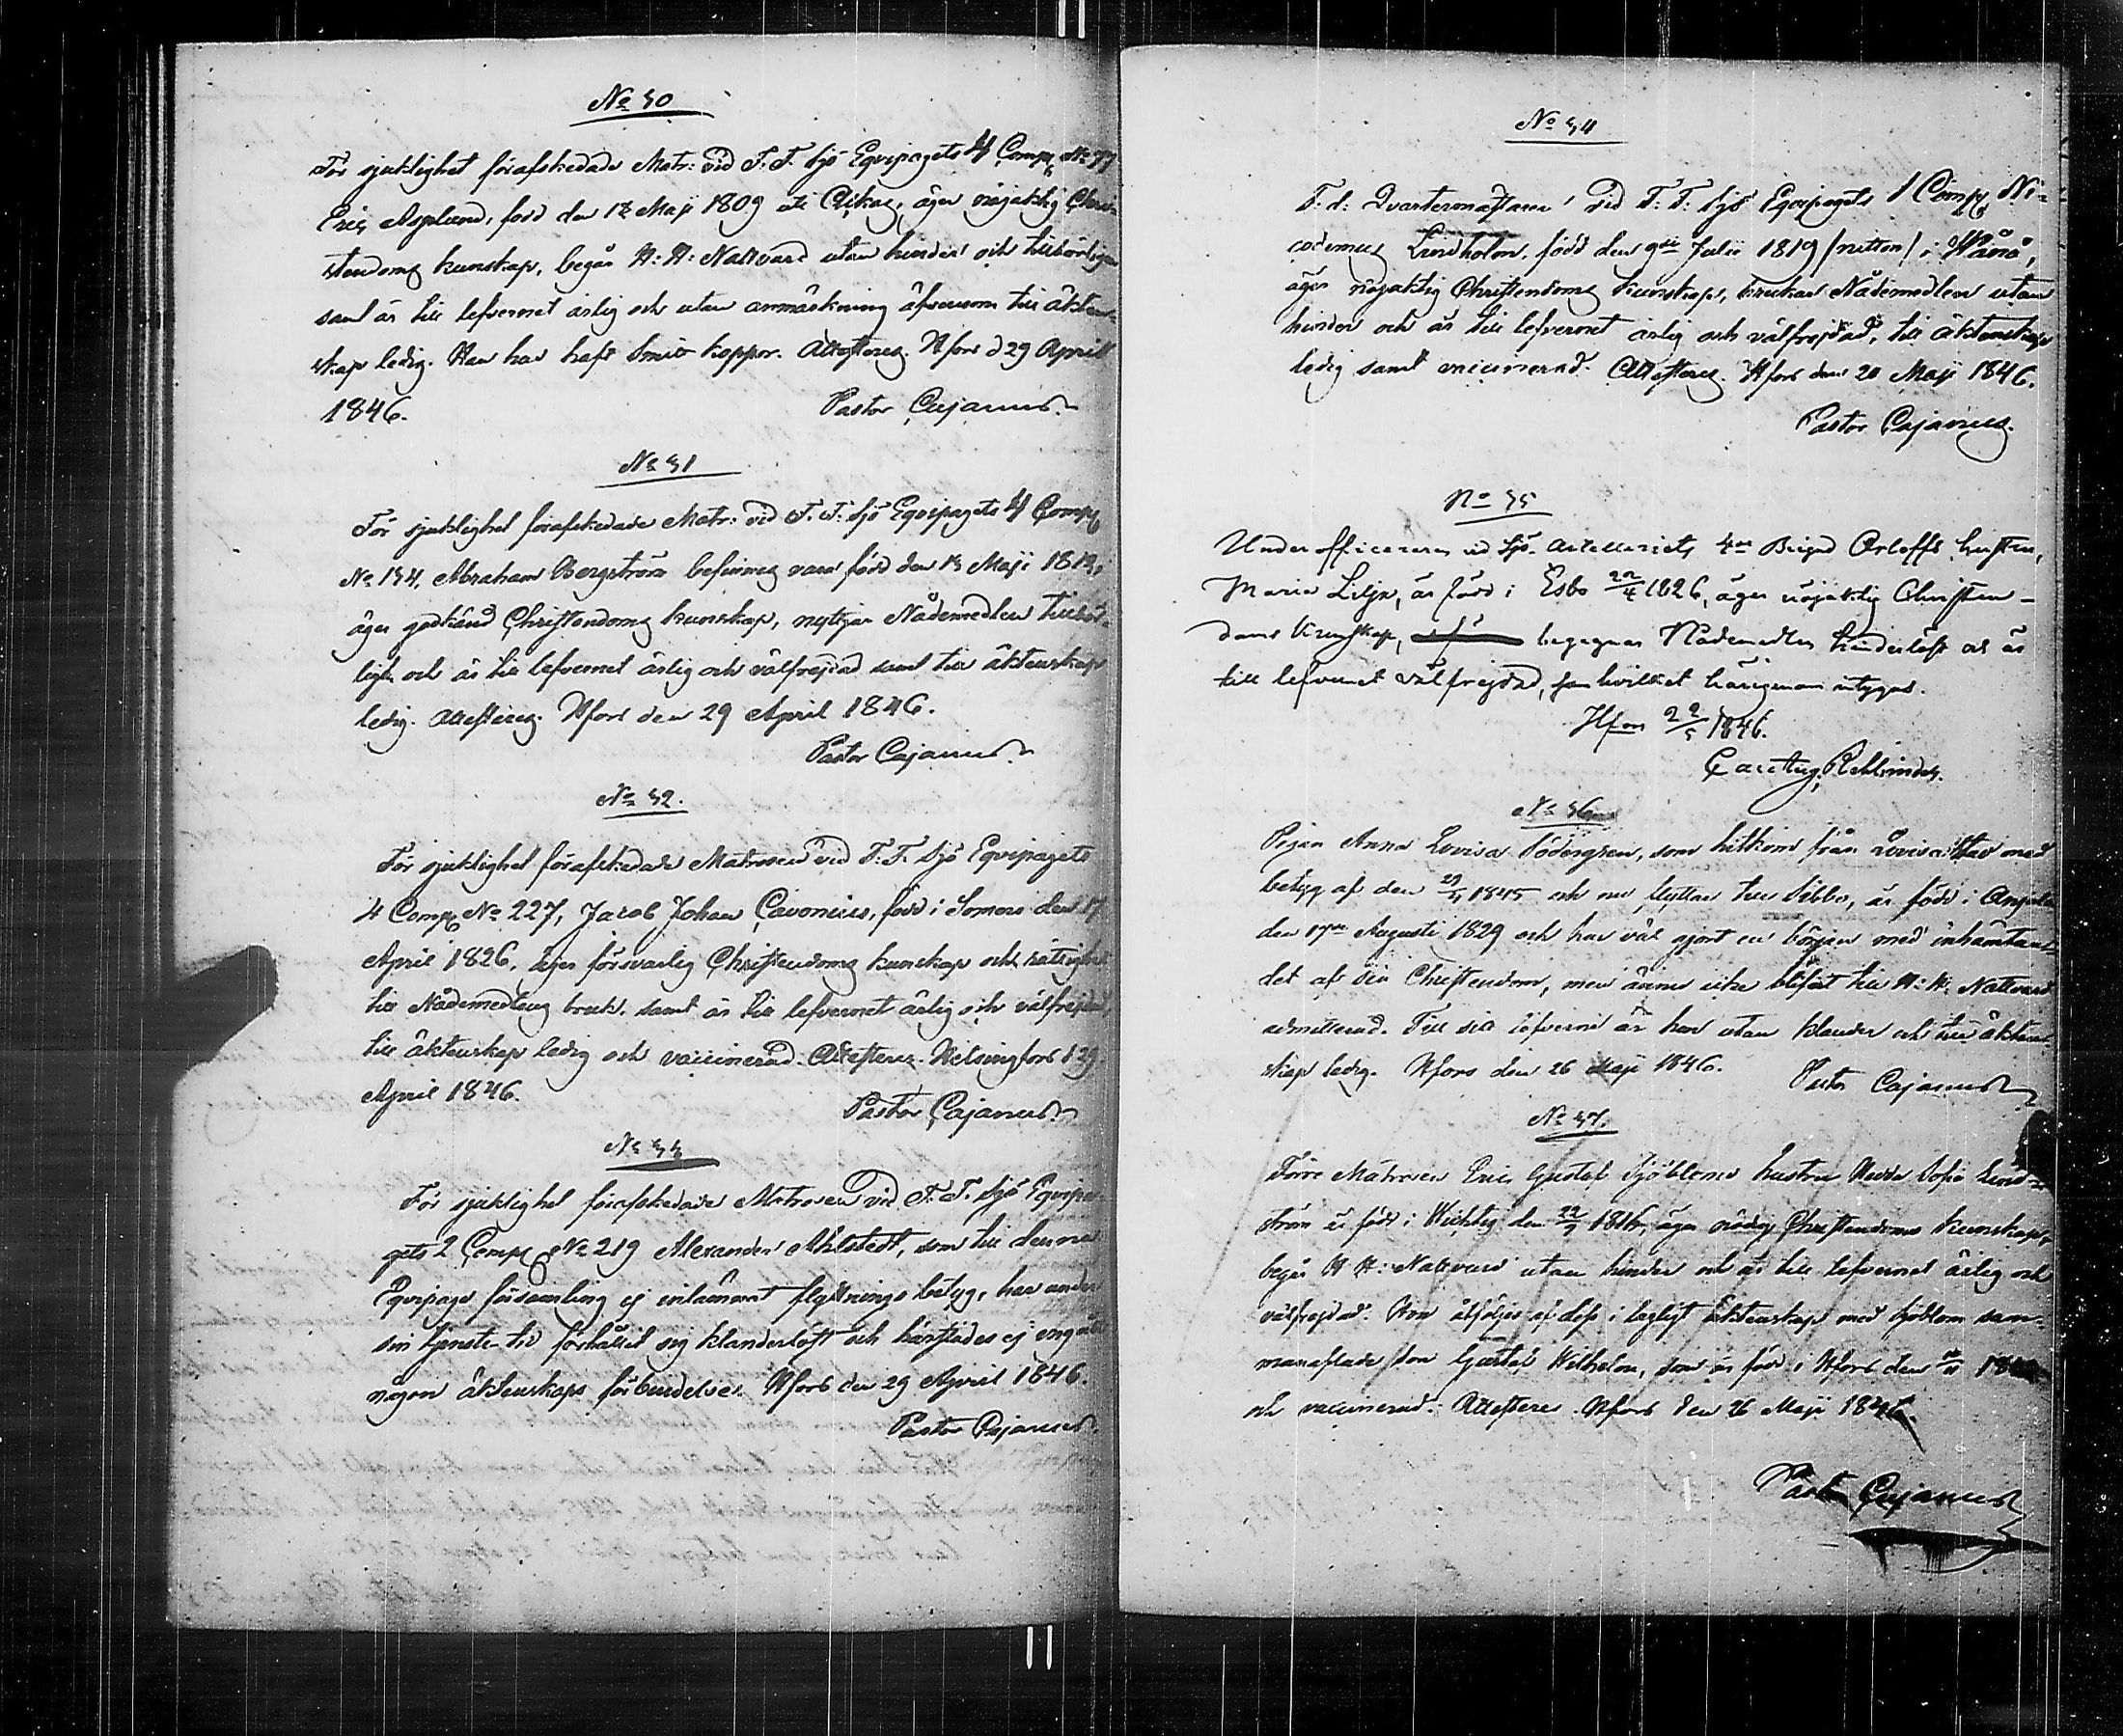 No 30
För sjuklighet förafskedade Matr: vid F. F. Sjö Equipagets 4 Comp. No 77
Eric Asplund, född den 12 Maji 1809 uti, äger nöjaktig Chri-
stendoms kunskap, begår H: H: Nattvard utan hinder och
samt är till lefvernet ärlig och utan anmärkning äfvensom till äkten-
skap ledig. Han har haft Smitt koppor. Attesteras. Hfors d 29 April
1846. Pastor Cajanus.
No 31
För sjuklighet förafskedade Matr: vid F. F. Sjö Equipagets 4 Comp.
No 134, Abraham Bergström befinnes vara född den 13 Maji
äger godkänd Christendoms kunskap, nyttjar Nådemedlen tillbör-
ligen och är till lefvernet ärlig och välfrejdad samt till äktenskap
ledig. Attesteras. Hfors den 29 April 1846.
Pastor Cajanus.
No 32.
För sjuklighet förafskedade Matrosen vid F: F. Sjö Equipagets
4 Comp. No 227, Jacob Johan Cavonius, född i Somero den 17
April 1826, äger försvarlig Christendoms kunskap och rättighet
till Nådemedlens bruk, samt är till lefvernet ärlig och välfrejdad,
till äktenskap ledig och vaccinerad. Attesteras. Helsingfors d 29
April 1846. Pastor Cajanus.
No 33
För sjuklighet förafskedade Matrosen vid F. F. Sjö Equipa-
gets 2 Comp. No 219 Alexander Ahlstedt, som till denna
Equipage församling ej inlämnat flyttnings betyg, har under
sin tjenste-tid förhållit sig klanderlöst och härstädes ej ingått
någon äktenskaps förbindelse. Hfors den 29 April 1846.
Pastor Cajanus.
No 34
F. d. Qvartermästaren vid F: F: Sjö Equipagets 1 Comp. Ni-
codemus Lindholm, född den 9de Julii 1819 /nitton/ i Wånå,
äger nöjaktig Christendoms kunskap, brukar Nådemedlen utan
hinder och är till lefvernet ärlig och välfrejdad, till äktenskap
ledig samt vaccinerad. Attesteras. Hfors den 20 Maji 1846.
Pastor Cajanus.
No 35
Underofficeren vid Sjö-Artilleriets 4de Brigad Orloffs hustru,
Maria Lilja, är född i Esbo 22/4 1826, äger nöjaktig Christen-
doms kunskap, begagnar Nådemedlen hinderlöst och är
till lefvernet välfrejdad, hvilket härigenom intygas.
Hfors 22/5 1846.
No 36
Pigan Anna Lovisa Södergren, som hitkom från Lovisa Stad med
betyg af den 29/4 1845 och nu flyttar till Sibbo, är född i Anjala
den 17de Augusti 1829 och har väl gjort en början med inhämtan-
det af sin Christendom, men ännu icke blifvit till H: H: Nattvard
admitterad. Till sitt lefverne är hon utan klander och till äkten-
skap ledig. Hfors den 26 Maji 1846. Pastor Cajanus
No 37.
Förre Matrosen Eric Gustaf Sjöbloms hustru Hedda Sofia Lind-
ström är född i Wichtis den 22/7 1816, äger nödig Christendoms kunskap,
begår H H: Nattvard utan hinder och är till lefvernet ärlig och
välfrejdad. Hon åtföljes af dess i lagligt äktenskap med Sjöblom sam-
manaflade son Gustaf Wilhelm, som är född i Hfors den
och vaccinerad. Attesteras. Hfors den 26 Maji 1846.
Pastor Cajanus